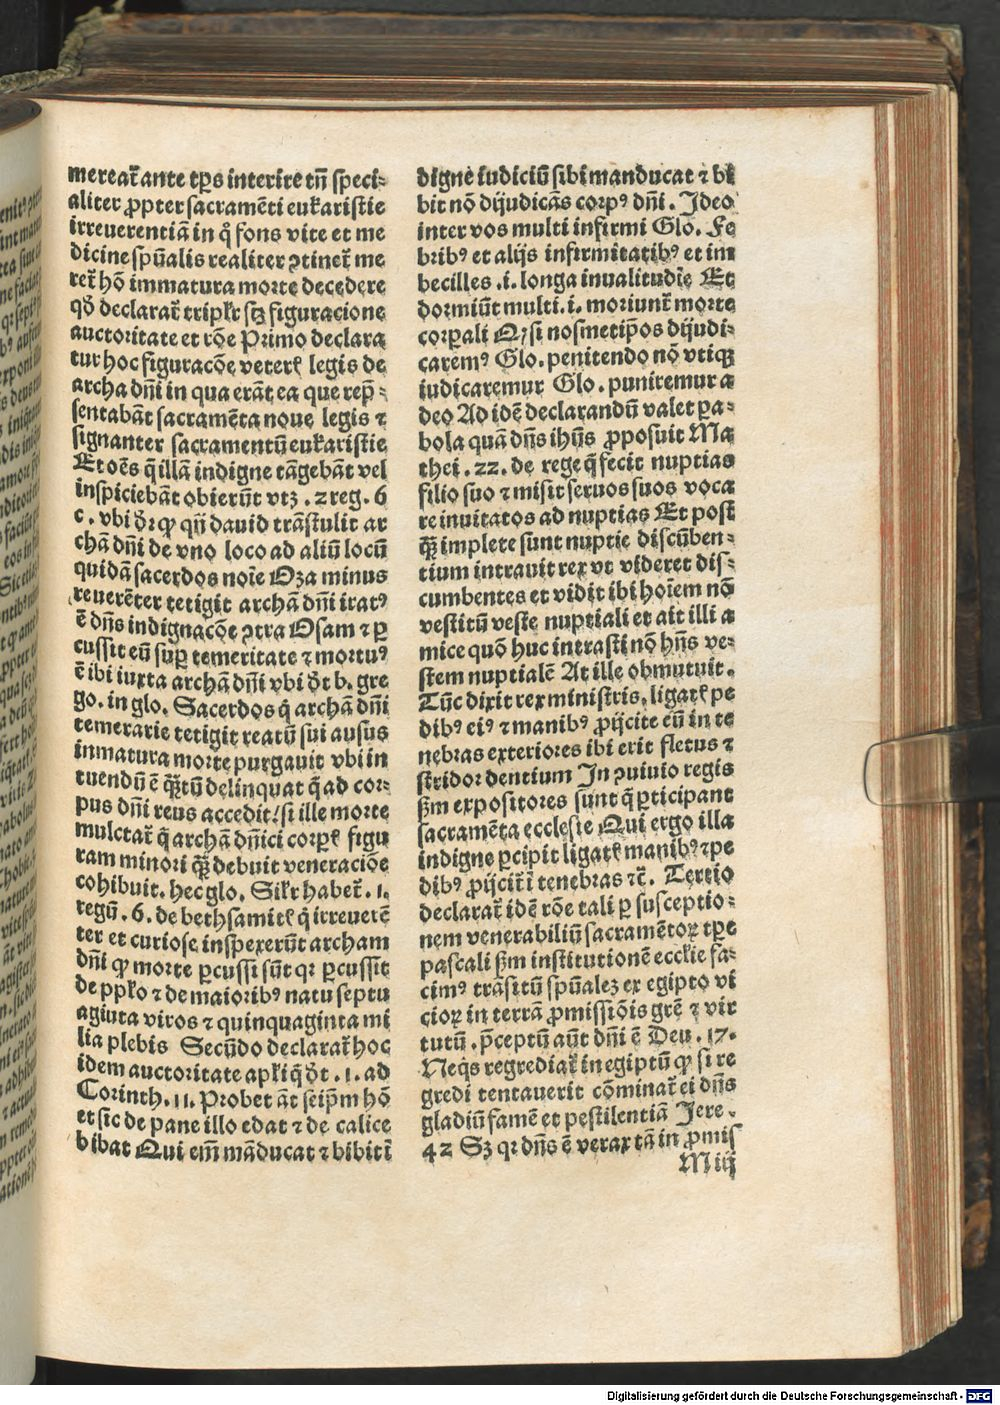 mereat᷑ ante tp̄s interire tn̄ speci⸗
aliter ꝓpter sacramēti eukaristie
irreuerentiā in q̊ fons vite et me
dicine spūalis realiter ꝯtinet᷑ me
ret᷑ hō immatura morte decedere
qđ declarat᷑ tripłr scꝫ figuracione
auctoritate et rōe Primo declara
tur hoc figuracōe veterꝭ legis de
archa dn̄i in qua erāt ea que rep̄⸗
sentabāt sacramēta noue legis ⁊
signanter sacramentū eukaristie
Et oēs q̄ illā indigne tāgebāt vel
inspiciebāt obierūt vtꝫ .2 reg. 6
c. vbi đr ꝙ qn̄ dauid trāstulit ar
chā dn̄i de vno loco ad aliū locū
quidā sacerdos noīe Oza minus
reuerēter tetigit archā dn̄i iratꝰ
ē dn̄s indignacōe ꝯtra Osam ⁊ ꝑ
cussit eū suꝑ temeritate ⁊ mortuꝰ
ē ibi iuxta archā dn̄i vbi đt b. gre
go. in glo. Sacerdos q̇ archā dn̄i
temerarie tetigit reatū sui ausus
inmatura morte purgauit vbi in
tuendū ē qꝫtū delinquat q̇ ad cor⸗
pus dn̄i reus accedit/ si ille morte
mulctat᷑ q̇ archā dn̄ici corꝑꝭ figu
ram minori qꝫ debuit veneraciōe
cohibuit. hec glo. Silr̄ habet᷑ .1.
regū. 6. de bethsamitꝭ q̇ irreuerē
ter et curiose inspexerūt archam
dn̄i ꝙ morte ꝑcussi sūt qr ꝑcussit
de ppło ⁊ de maioribꝰ natu septu
aginta viros ⁊ quinquaginta mi
lia plebis Secūdo declarat᷑ hoc
idem auctoritate apłi q̇ đt .1. ad
Corinth. 11. Probet āt seip̄m hō
et sic de pane illo edat ⁊ de calice
bibat Qui em̄ māducat ⁊ bibit ī
digne iudiciū sibi manducat ⁊ bi
bit nō dijudicās corpꝰ dn̄i. Ideo
inter vos multi infirmi Glo. Fe
bribꝰ et alijs infirmitatibꝰ et im
becilles .i. longa inualitudīe Et
dormiūt multi .i. moriunt᷑ morte
corꝑali Qꝫ si nosmetip̄os dijudi⸗
caremꝰ Glo. penitendo nō vtiqꝫ
iudicaremur Glo. puniremur a
deo Ad idē declarandū valet pa⸗
bola quā dn̄s ihūs ꝓposuit Ma
thei. 22. de rege q̇ fecit nuptias
filio suo ⁊ misit seruos suos voca
re inuitatos ad nuptias Et post
qꝫ implete sunt nuptie discūben⸗
tium intrauit rex vt videret dis⸗
cumbentes et vidit ibi hoīem nō
vestitū veste nuptiali et ait illi a
mice quō huc intrasti nō hn̄s ve⸗
stem nuptialē At ille obmutuit.
Tūc dixit rex ministris. ligatꝭ pe
dibꝰ eiꝰ ⁊ manibꝰ ꝓijcite eū in te
nebras exteriores ibi erit fletus ⁊
stridor dentium In ꝯuiuio regis
ẜm expositores sunt q̇ ꝑticipant
sacramēta ecclesie Qui ergo illa
indigne ꝑcipit ligatꝭ manibꝰ ⁊ pe
dibꝰ ꝓijcit᷑ ī tenebras ⁊c̄. Tertio
declarat᷑ idē rōe tali ꝑ susceptio⸗
nem venerabiliū sacramētoꝝ tꝑe
pascali ẜm institutionē eccłie fa⸗
cimꝰ trāsitū spūalez ex egipto vi
cioꝝ in terrā ꝓmissiōis grē ⁊ vir
tutū. p̄ceptū aūt dn̄i ē Deu. 17.
Neq̇s regrediat᷑ in egiptū ꝙ si re
gredi tentauerit cōminat᷑ ei dn̄s
gladiū famē et pestilentiā Jere.
42 Sꝫ qr dn̄s ē verax tā in ꝓmis
M iij
Digitalisierung gefördert durch die Deutsche Forschungsgemeinschaft - DFG